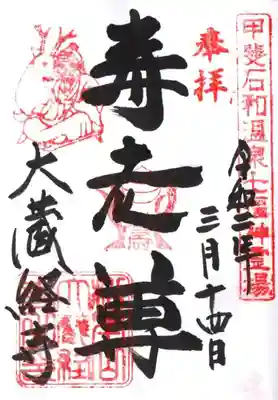 甲斐石和温泉七福神霊場
奉拝
令和二年
三月十四日
寿老尊
大蔵経寺